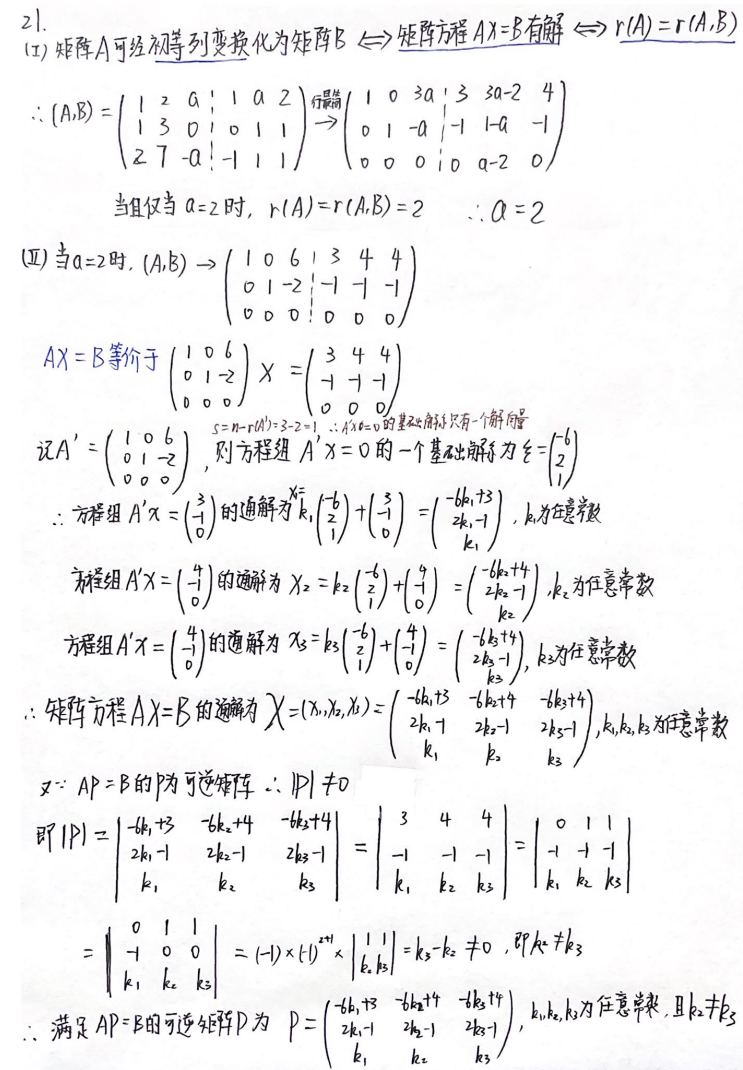 21.
(I) 矩阵A可经初等列变换化为矩阵B ⟺ 矩阵方程AX=B有解 ⟺ r(A)=r(A,B)
∴(A,B) = ( 1 2 a ¦ 1 a 2 ; 1 3 0 ¦ 0 1 1 ; 2 7 -a ¦ -1 1 1 ) 行最简→ ( 1 0 3a ¦ 3 3a-2 4 ; 0 1 -a ¦ -1 1-a -1 ; 0 0 0 ¦ 0 a-2 0 )
当且仅当 a=2时, r(A)=r(A,B)=2 ∴a=2
(II) 当a=2时, (A,B) → ( 1 0 6 ¦ 3 4 4 ; 0 1 -2 ¦ -1 -1 -1 ; 0 0 0 ¦ 0 0 0 )
AX=B等价于 ( 1 0 6 ; 0 1 -2 ; 0 0 0 ) X = ( 3 4 4 ; -1 -1 -1 ; 0 0 0 )
s=n-r(A')=3-2=1 ∴A'x=0的基础解系只有一个解向量
记A' = ( 1 0 6 ; 0 1 -2 ; 0 0 0 ), 则方程组 A'x=0 的一个基础解系为 ξ=( -6 ; 2 ; 1 )
∴ 方程组 A'x = ( 3 ; -1 ; 0 ) 的通解为 x₁= k₁( -6 ; 2 ; 1 ) + ( 3 ; -1 ; 0 ) = ( -6k₁+3 ; 2k₁-1 ; k₁ ), k₁为任意常数
方程组 A'x = ( 4 ; -1 ; 0 ) 的通解为 x₂ = k₂( -6 ; 2 ; 1 ) + ( 4 ; -1 ; 0 ) = ( -6k₂+4 ; 2k₂-1 ; k₂ ), k₂为任意常数
方程组 A'x = ( 4 ; -1 ; 0 ) 的通解为 x₃ = k₃( -6 ; 2 ; 1 ) + ( 4 ; -1 ; 0 ) = ( -6k₃+4 ; 2k₃-1 ; k₃ ), k₃为任意常数
∴ 矩阵方程AX=B的通解为 X=(x₁,x₂,x₃) = ( -6k₁+3 -6k₂+4 -6k₃+4 ; 2k₁-1 2k₂-1 2k₃-1 ; k₁ k₂ k₃ ), k₁,k₂,k₃为任意常数
又∵ AP=B的P为可逆矩阵 ∴|P|≠0
即|P| = | -6k₁+3 -6k₂+4 -6k₃+4 ; 2k₁-1 2k₂-1 2k₃-1 ; k₁ k₂ k₃ | = | 3 4 4 ; -1 -1 -1 ; k₁ k₂ k₃ | = | 0 1 1 ; -1 -1 -1 ; k₁ k₂ k₃ |
= | 0 1 1 ; -1 0 0 ; k₁ k₂ k₃ | = (-1)×(-1)²⁺¹× | 1 1 ; k₂ k₃ | = k₃-k₂≠0, 即k₂≠k₃
∴ 满足AP=B的可逆矩阵P为 P = ( -6k₁+3 -6k₂+4 -6k₃+4 ; 2k₁-1 2k₂-1 2k₃-1 ; k₁ k₂ k₃ ), k₁,k₂,k₃为任意常数, 且k₂≠k₃